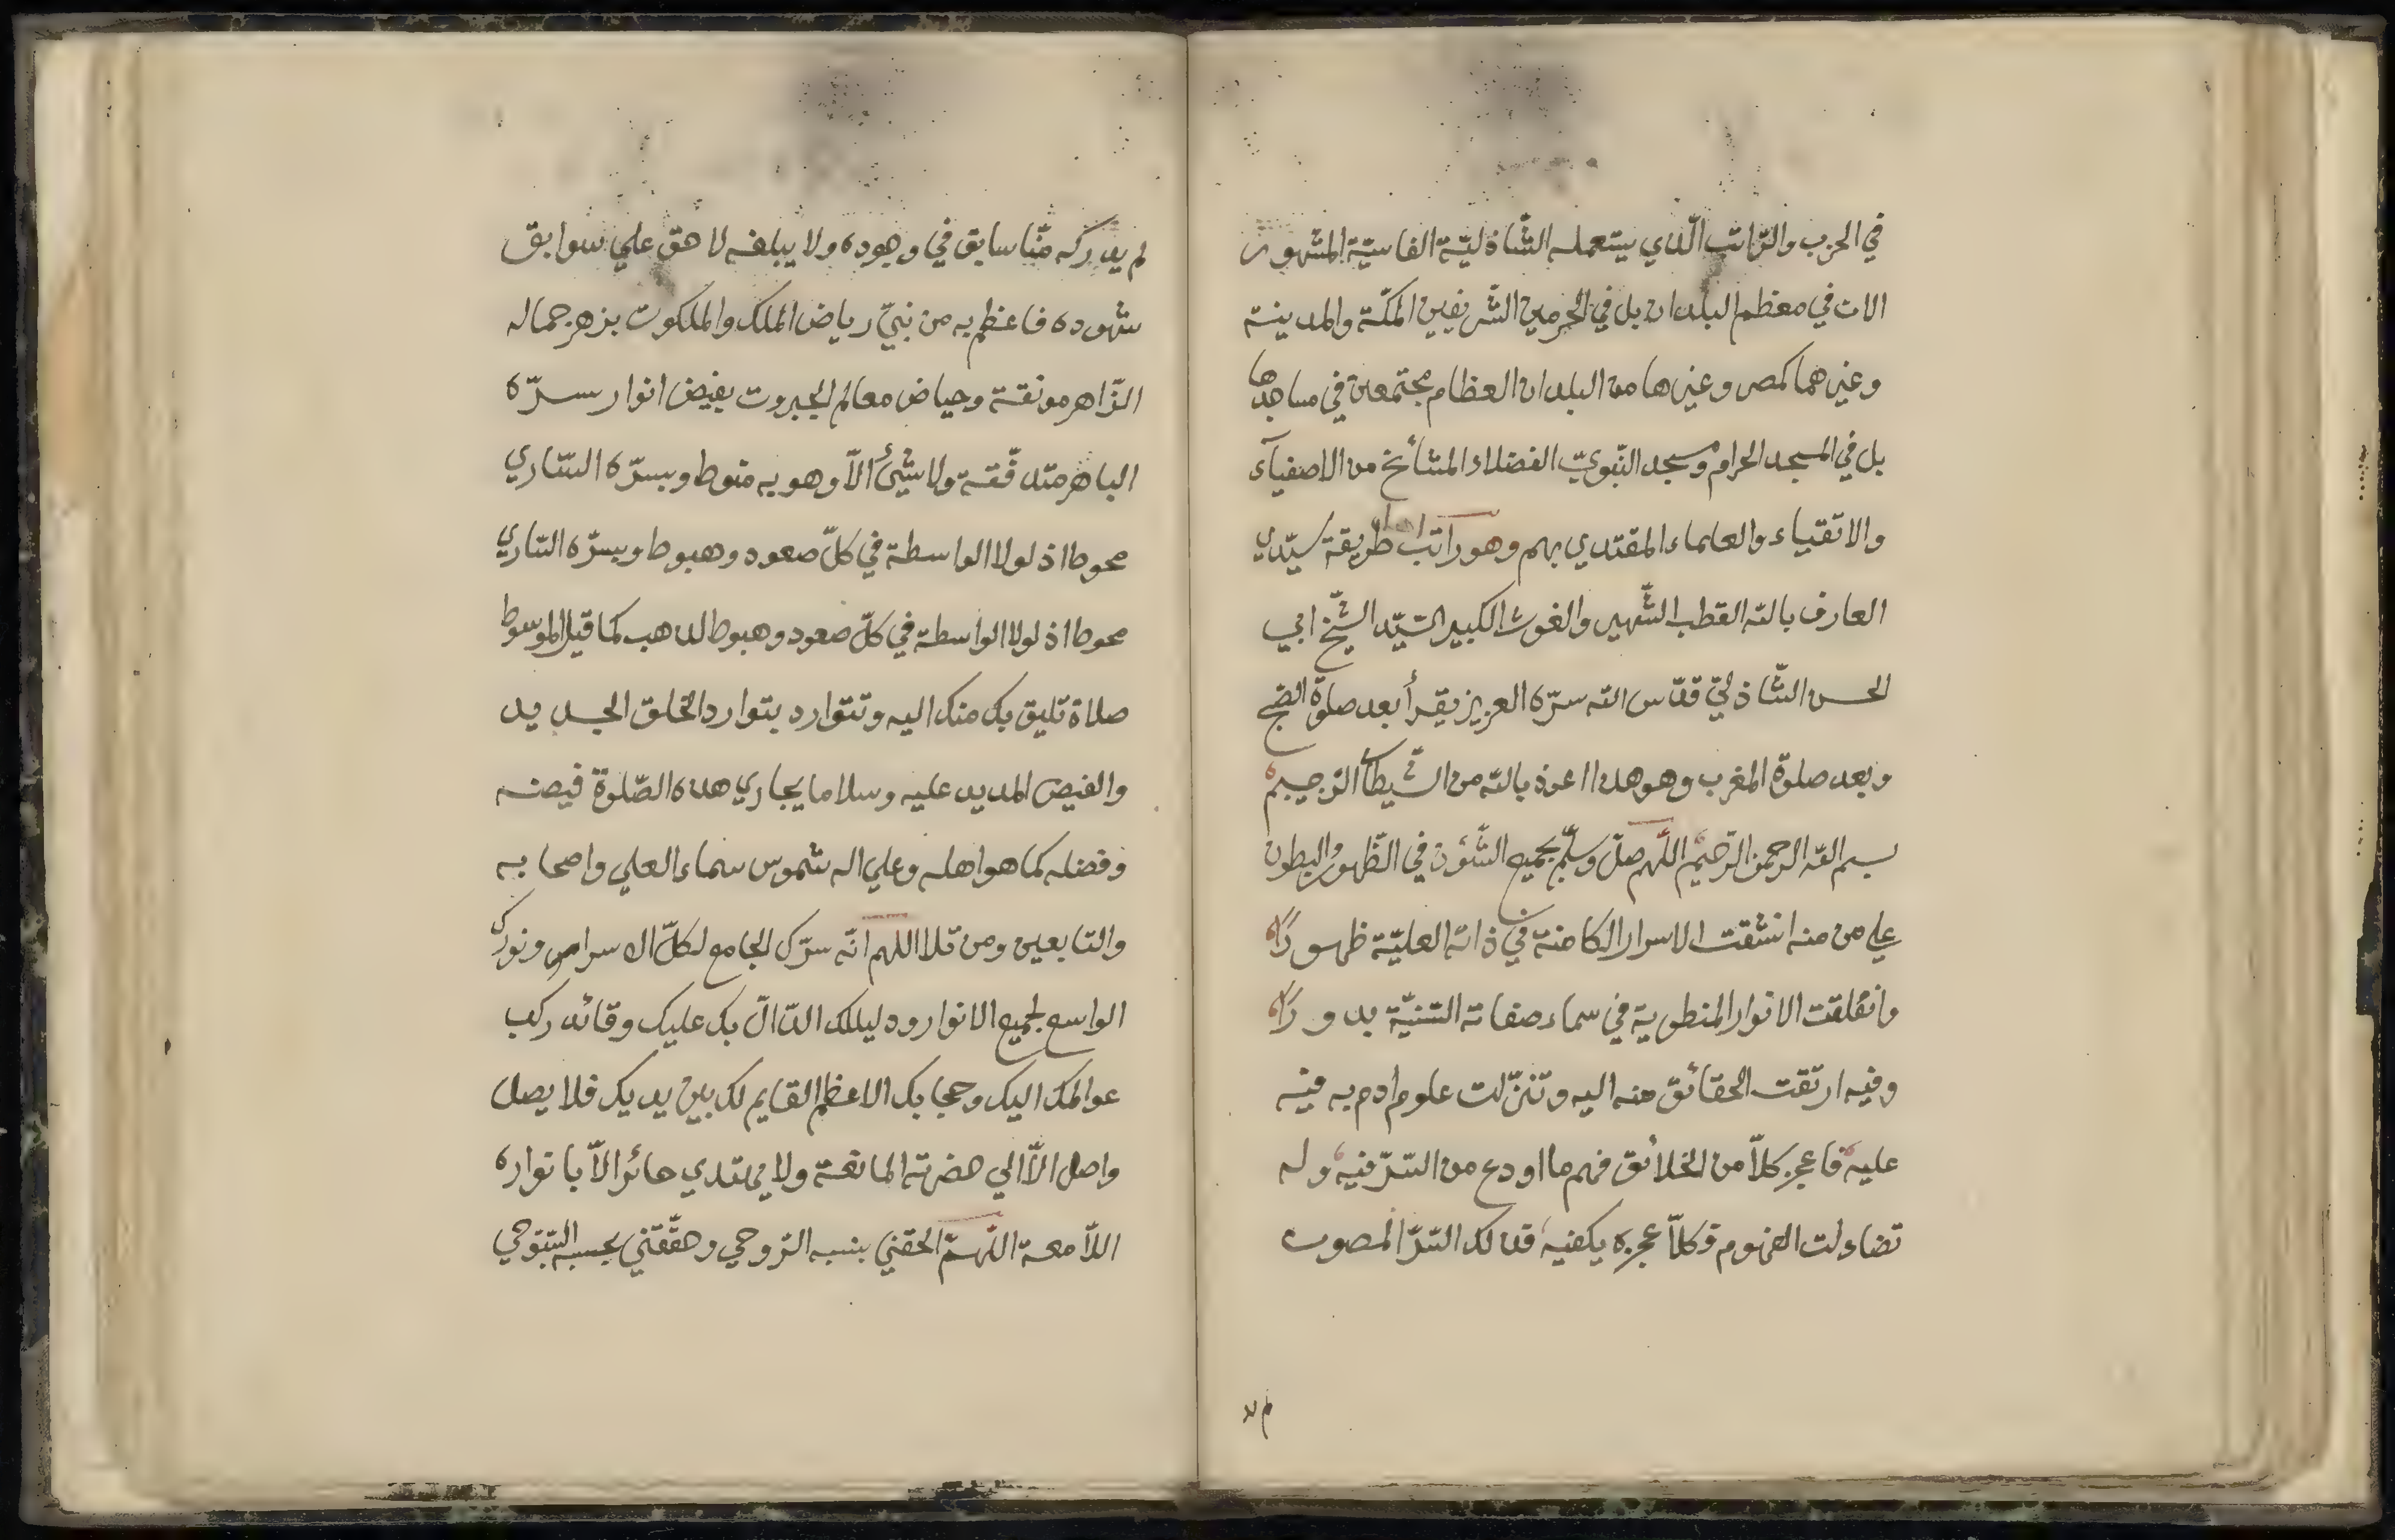 في الحزب والرّاتب الّذي يستعمله الشّاذليّة الفاسيّة المشهور
الان في معظم البلدان بل في الحرمين الشّريفين المكّة والمدينة
وغيرهما كمصر وغيرها من البلدان العظام مجتمعين في مساجدها
بل في المسجد الحرام ومسجد النّبويّ الفضلاء المشائخ من الاصفيآء
والاتقياء والعلماء المقتدي بهم وهو راتب طريقة سيّدي
العارف بالله القطب الشّهير والغوث الكبير السّيّد الشّيخ ابي
الحسن الشّاذليّ قدّس الله سرّه العزيز يقرأ بعد صلوة الصّبح
وبعد صلوة المغرب وهو هذا اعوذ بالله من الشّيطان الرّجيم
بسم الله الرحمن الرّحيم اللّهم صلّ وسلّم بجميع الشّؤن في الظّهور والبطون
علي من منه انشقت الاسرار الكامنة في ذاته العليّة ظهوراً
وانفلقت الانوار المنطوية في سماء صفاته السّنيّة بدوراً
وفيه ارتقت الحقائق منه اليه وتنزّلت علوم ادم به فيه
عليه فاعجز كلاّ من الخلائق فهم ما اودع من السّرّ فيه وله
تضاءلت الفهوم وكلاّ عجزه يكفيه فذلك السّرّ المصون
لم يد
لم يدركه منّا سابق في وجوده ولا يبلغه لاحق علي سوابق
شهوده فاعظم به من نبيّ رياض الملك والملكوت بزهر جماله
الزّاهر مونقة وحياض معالم الجبروت بفيض انوار سرّه
الباهر متدفّقة ولا شيئ الاّ وهو به منوط وبسرّه السّاري
محوط اذ لولا الواسطة في كلّ صعود وهبوط وبسرّه السّاري
محوط اذ لولا الواسطة في كلّ صعود وهبوط لذهب كما قيل الموسوط
صلاة تليق بك منك اليه وتتوارد بتوارد الخلق الجديد
والفيض المديد عليه وسلاما يجاري هذه الصّلوة فيضه
وفضله كما هو اهله وعلي اله شموس سماء العلي واصحابه
والتابعين ومن تلا اللهم انّه سرّك الجامع لكلّ الاسرار ونورك
الواسع لجميع الانوار ودليلك الدّالّ بك عليك وقائد ركب
عوالمك اليك وحجابك الاعظم القايم لك بين يديك فلا يصل
واصل الاّ الي حضرته المانعة ولا يهتدي حائر الاّ بانواره
اللاّمعة اللّهمّ الحقني بنسبه الرّوحي وحقّقني بحسبه السّبّوحي